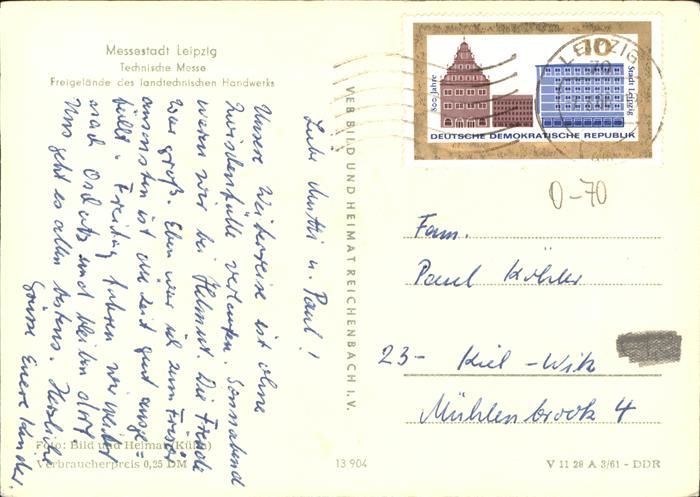 Messestadt Leipzig
Technische Messe
Freigelände des landtechnischen Handwerks
Liebe Mutti u. Paul!
Unsere Weiterreise ist ohne
Zwischenfälle verlaufen. Sonnabend
waren wir bei Helmut. Die Freude
war groß. Eben war ich zum Friseur
ansonsten ist die Zeit gut ausge=
füllt. Freitag fahren wir weiter
nach Oschatz und bleiben dort.
Uns geht es allen bestens. Herzliche
Grüsse Euere Kinder
Foto: Bild und Heimat (Kühn)
Verbraucherpreis 0,25 DM
VEB BILD UND HEIMAT REICHENBACH I. V.
13 904
800 Jahre
10
Stadt Leipzig
DEUTSCHE DEMOKRATISCHE REPUBLIK
LEIPZIG
70
0-70
Fam.
Paul Köhler
23- Kiel-Wik
Mühlenbrook 4
V 11 28 A 3/61 - DDR